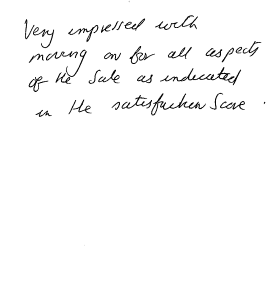 Very impressed with
moving on for all aspects
of the Sale as indicated
in the satisfaction Score.